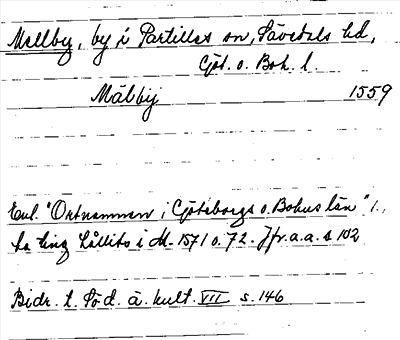 Mellby, by i Partilles sn, Sävedals hd,
Gbt. o. Boh. l.
Mälby 1559
Enl. "Ortnamnen i Göteborgs o. Bohus län" 1.,
ha ting hållits i M. 1571 o. 72. Jfr. a. a. s 102
Bidr. t. Söd. ä. kult. VII s. 146